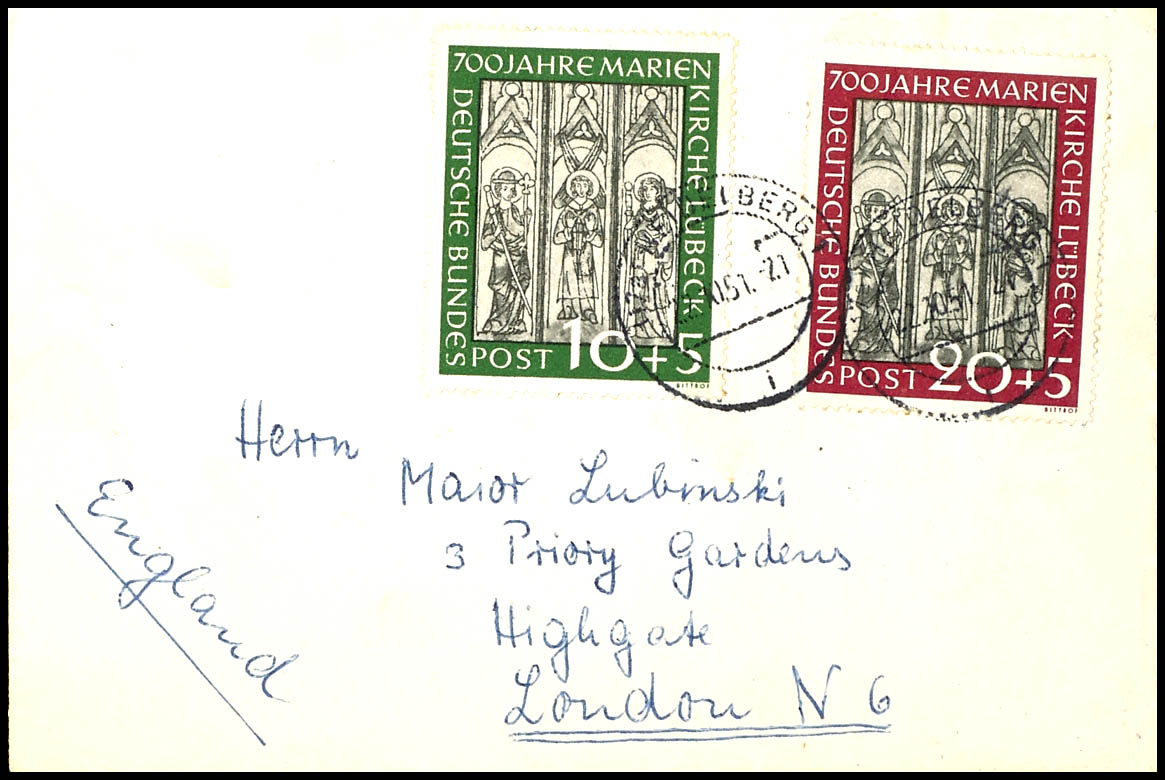 700 JAHRE MARIEN
KIRCHE LÜBECK
DEUTSCHE BUNDES
POST 10+5
BITTROF
700 JAHRE MARIEN
KIRCHE LÜBECK
DEUTSCHE BUNDES
POST 20+5
BITTROF
Herrn
Maior Lubinski
3 Priory Gardens
Highgate
London N 6
England